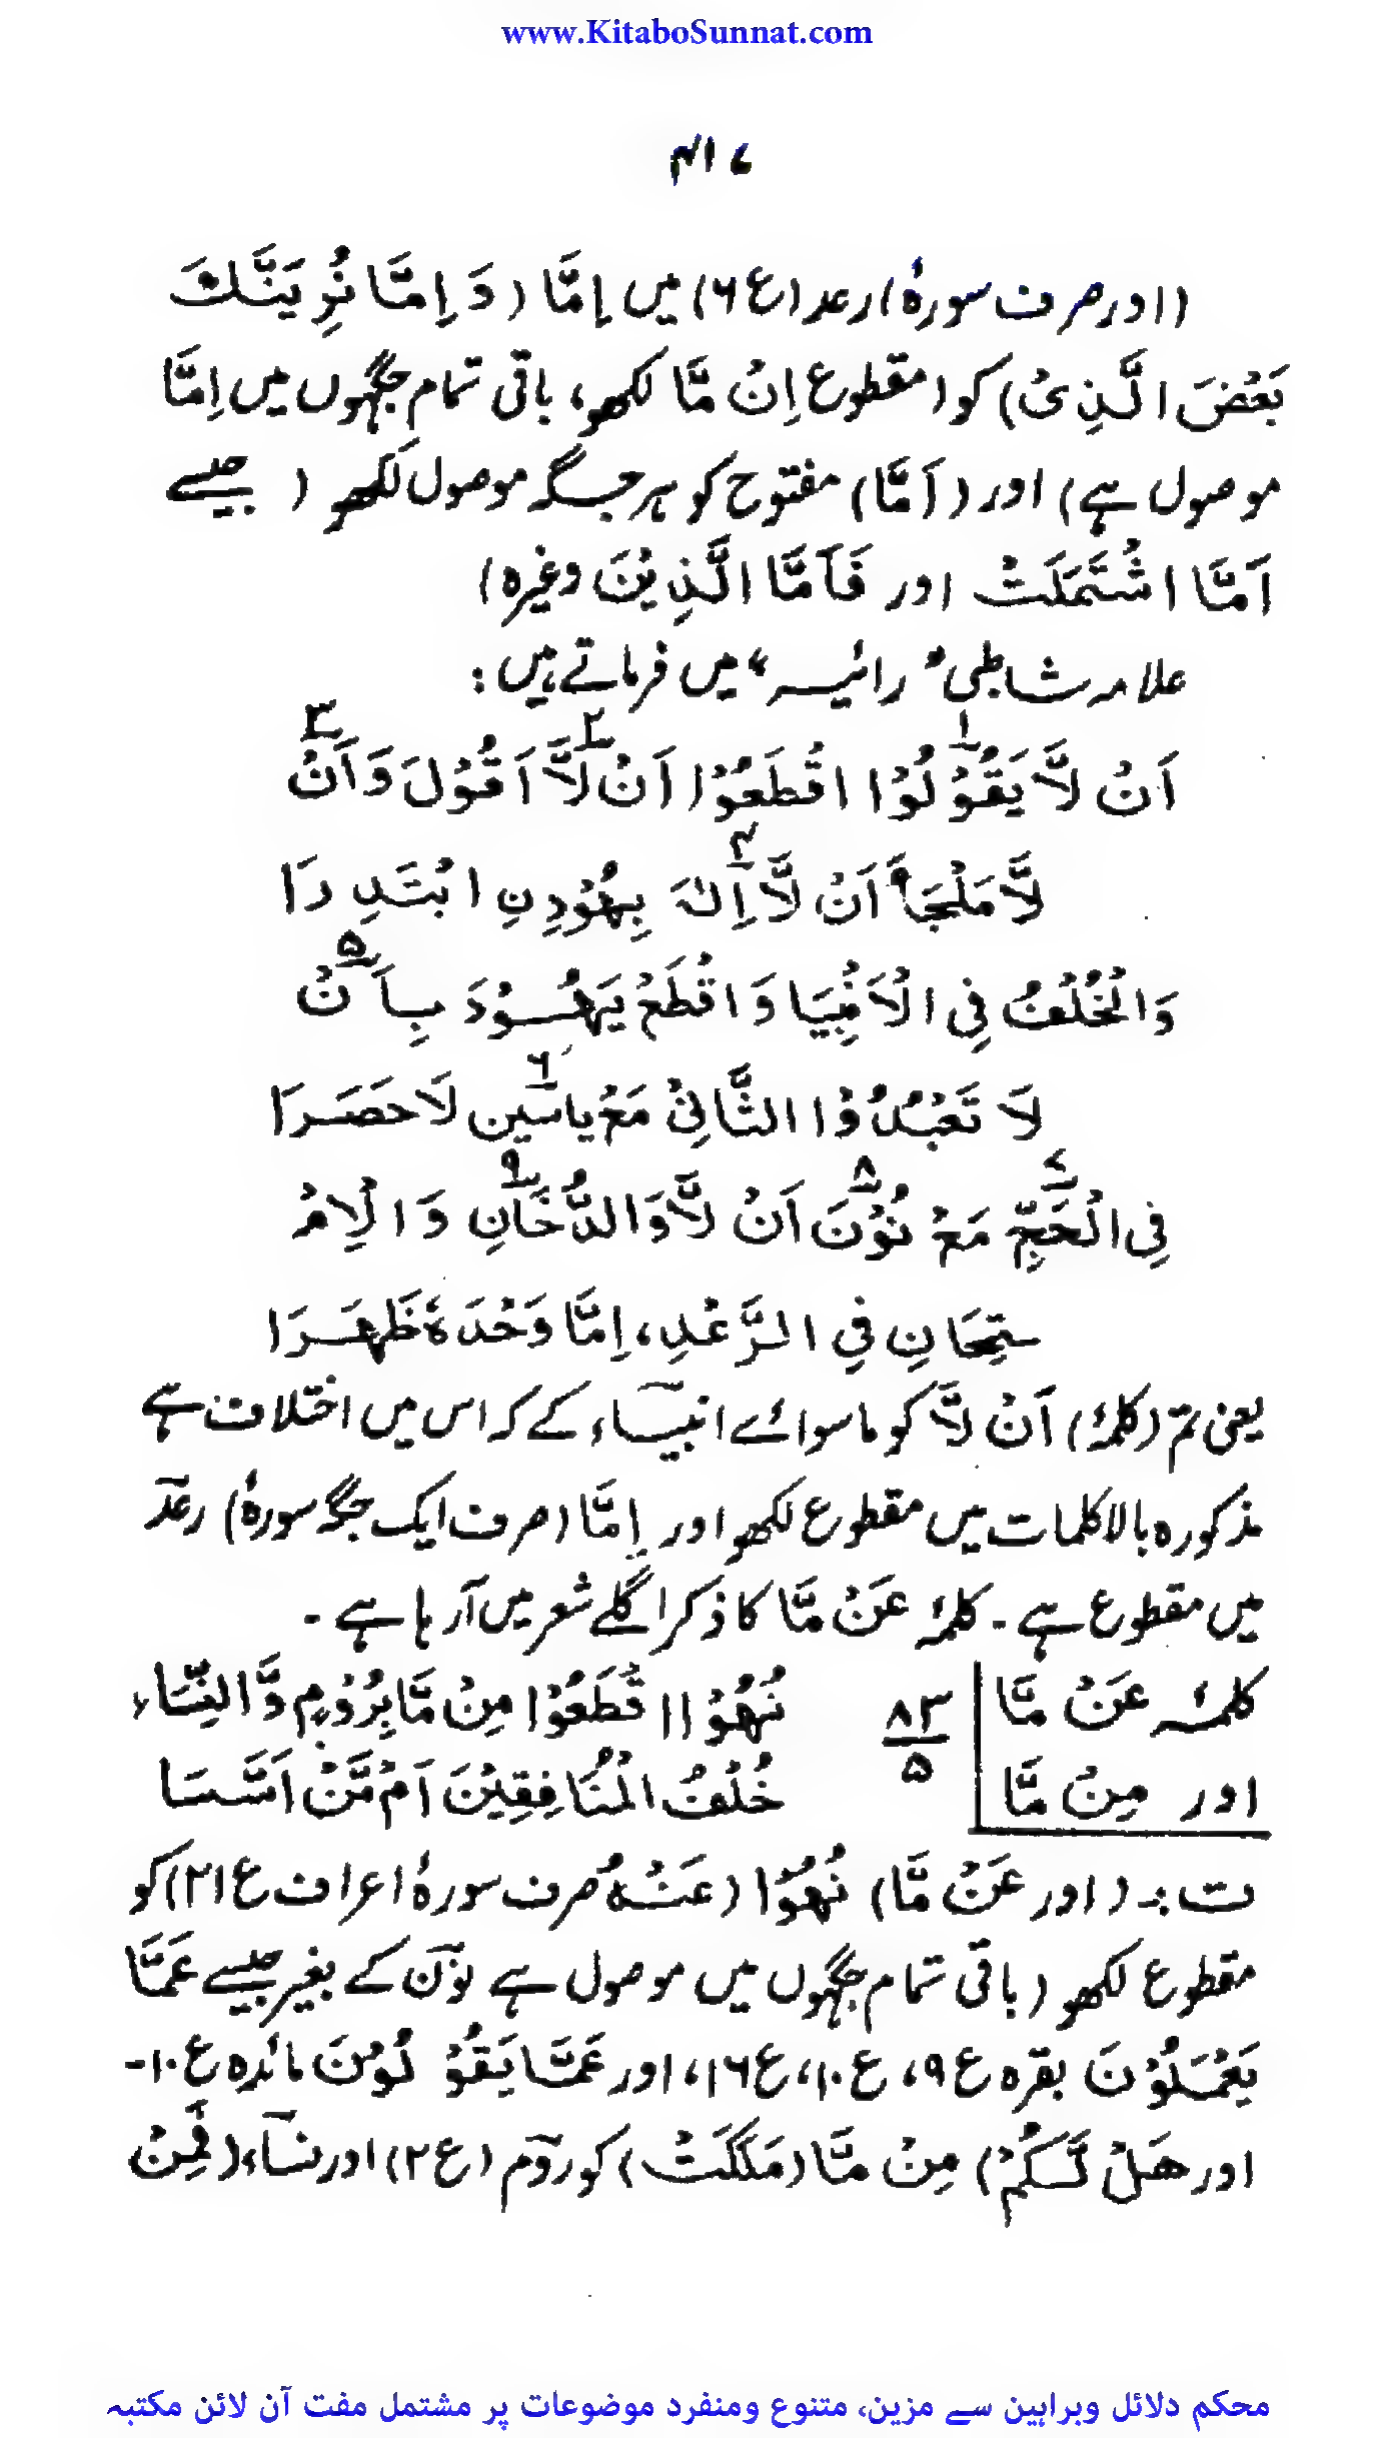 www.KitaboSunnat.com
۴۱۷
(اور صرف سورۂ) رعد (ع ۶) میں اِمَّا (وَ اِمَّا نُرِيَنَّكَ
بَعْضَ الَّذِىْ) کو (مقطوع اِنْ مَّا لکھو، باقی تمام جگہوں میں اِمَّا
موصول ہے) اور (اَمَّا) مفتوح کو ہر جگہ موصول لکھو ( جیسے
اَمَّا اشْتَمَلَتْ اور فَاَمَّا الَّذِيْنَ وغیرہ)
علامہ شاطبیؒ ”رائیہ“ میں فرماتے ہیں:
اَنْ لَّا يَقُوْلُوْا اقْطَعُوْا اَنْ لَّا اَقُوْلَ وَاَنْ
لَّا مَلْجَاَ اَنْ لَّا اِلٰهَ بِهُوْدِنِ ابْتَدِ رَا
وَالْخُلْفُ فِى الْاَنْبِيَا وَاقْطَعْ بِهُوْدَ بِاَنْ
لَا تَعْبُدُوْا الثَّانِىْ مَعْ يَاسِين لَا حَصَرَا
فِى الْحَجِّ مَعْ نُوْنَ اَنْ لَّا وَالدُّخَانِ وَالْاِمْ
تِحَانِ فِى الرَّعْدِ، اِمَّا وَحْدَهٗ ظَهَرَا
یعنی تم (کلمۂ) اَنْ لَّا کو ماسوائے انبیاء کے کہ اس میں اختلاف ہے
مذکورہ بالا کلمات میں مقطوع لکھو اور اِمَّا (صرف ایک جگہ سورۂ) رعد
میں مقطوع ہے۔ کلمۂ عَنْ مَّا کا ذکر اگلے شعر میں آ رہا ہے۔
کلمۂ عَنْ مَّا ۸۳ نُهُوْا اقْطَعُوْا مِنْ مَّا بِرُوْمٍ وَّالنِّسَاء
اور مِنْ مَّا ۵ خُلْفُ الْمُنَافِقِيْنَ اَمْ مَّنْ اَسَّسَا
ت :۔ (اور عَنْ مَّا) نُهُوْا (عَنْهُ صرف سورۂ اعراف ع ۲۱) کو
مقطوع لکھو (باقی تمام جگہوں میں موصول ہے نون کے بغیر جیسے عَمَّا
يَعْمَلُوْنَ بقرہ ع ۹، ع ۱۰، ع ۱۶، اور عَمَّا يَقُوْلُوْنَ مائدہ ع ۱۰۔
اور هَلْ لَّكُمْ) مِنْ مَّا (مَلَكَتْ) کو روم (ع ۴) اور نساء (فَمِنْ
محکم دلائل وبراہین سے مزین، متنوع ومنفرد موضوعات پر مشتمل مفت آن لائن مکتبہ